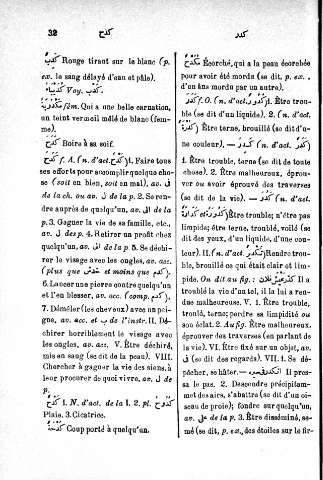 32 كدح كدر
كَدْبٌ Rouge tirant sur le blanc (p.
ex. le sang délayé d'eau et pâle).
Voy. كَدْبٌ.
Qui a une belle carnation,
un teint vermeil mêlé de blanc (fem-
me).
كَدَجَ Boire à sa soif.
كَدَحَ f. A. (n. d'act. كَدْحٌ) 1. Faire tous
ses efforts pour accomplir quelque cho-
se (soit en bien, soit en mal), av. في
de la ch. ou av. ل de la p. 2. Se ren-
dre auprès de quelqu'un, av. الى de la
p. 3. Gagner la vie de sa famille, etc.,
av. ل des p. 4. Retirer un profit chez
quelqu'un, av. الى de la p. 5. Se déchi-
rer le visage avec les ongles, av. acc.
(plus que خدش et moins que كدم).
6. Lancer une pierre contre quelqu'un
et l'en blesser, av. acc. (comp. كدم).
7. Démêler (les cheveux) avec un pei-
gne, av. acc. et ب de l'instr. II. Dé-
chirer horriblement le visage avec
les ongles, av. acc. V. Être déchiré,
mis en sang (se dit de la peau). VIII.
Chercher à gagner la vie des siens, à
leur procurer de quoi vivre, av. ل de
p.
كَدْحٌ 1. N. d'act. de la I. 2. pl. كُدُوحٌ
Plaie. 3. Cicatrice.
Coup porté à quelqu'un.
مُكَدَّحٌ Écorché, qui a la peau écorchée
pour avoir été mordu (se dit, p. ex.
d'un âne mordu par un autre).
كَدَرَ f. O. (n. d'act. 1. Être trou-
ble (se dit d'un liquide). 2. (n. d'act.
Être terne, brouillé (se dit d'u-
ne couleur). — كَدِرَ (n. d'act.
1. Être trouble, terne (se dit de toute
chose). 2. Être malheureux, éprou-
ver ou avoir éprouvé des traverses
(se dit de la vie). — كَدُرَ (n. d'act.
Être trouble; n'être pas
limpide; être terne, troublé, voilé (se
dit des yeux, d'un liquide, d'une cou-
leur). II. (n. d'act. تَكْدِيرٌ) Rendre trou-
ble, brouillé ce qui était clair et lim-
pide. On dit au fig.: كدر عيش فلان Il a
troublé la vie d'un tel, il lui a ren-
due malheureuse. V. 1. Être trouble,
troublé, terne; perdre sa limpidité ou
son éclat. 2. Au fig. Être malheureux,
éprouver des traverses (en parlant de
la vie). VI. Être fixé sur un objet, av.
في (se dit des regards). VII. 1. Se dé-
pêcher, se hâter. — Il pres-
sa le pas. 2. Descendre précipitam-
ment des airs, s'abattre (se dit d'un oi-
seau de proie); fondre sur quelqu'un,
av. على de la p. 3. Être disséminé, se-
mé (se dit, p. ex., des étoiles sur le fir-